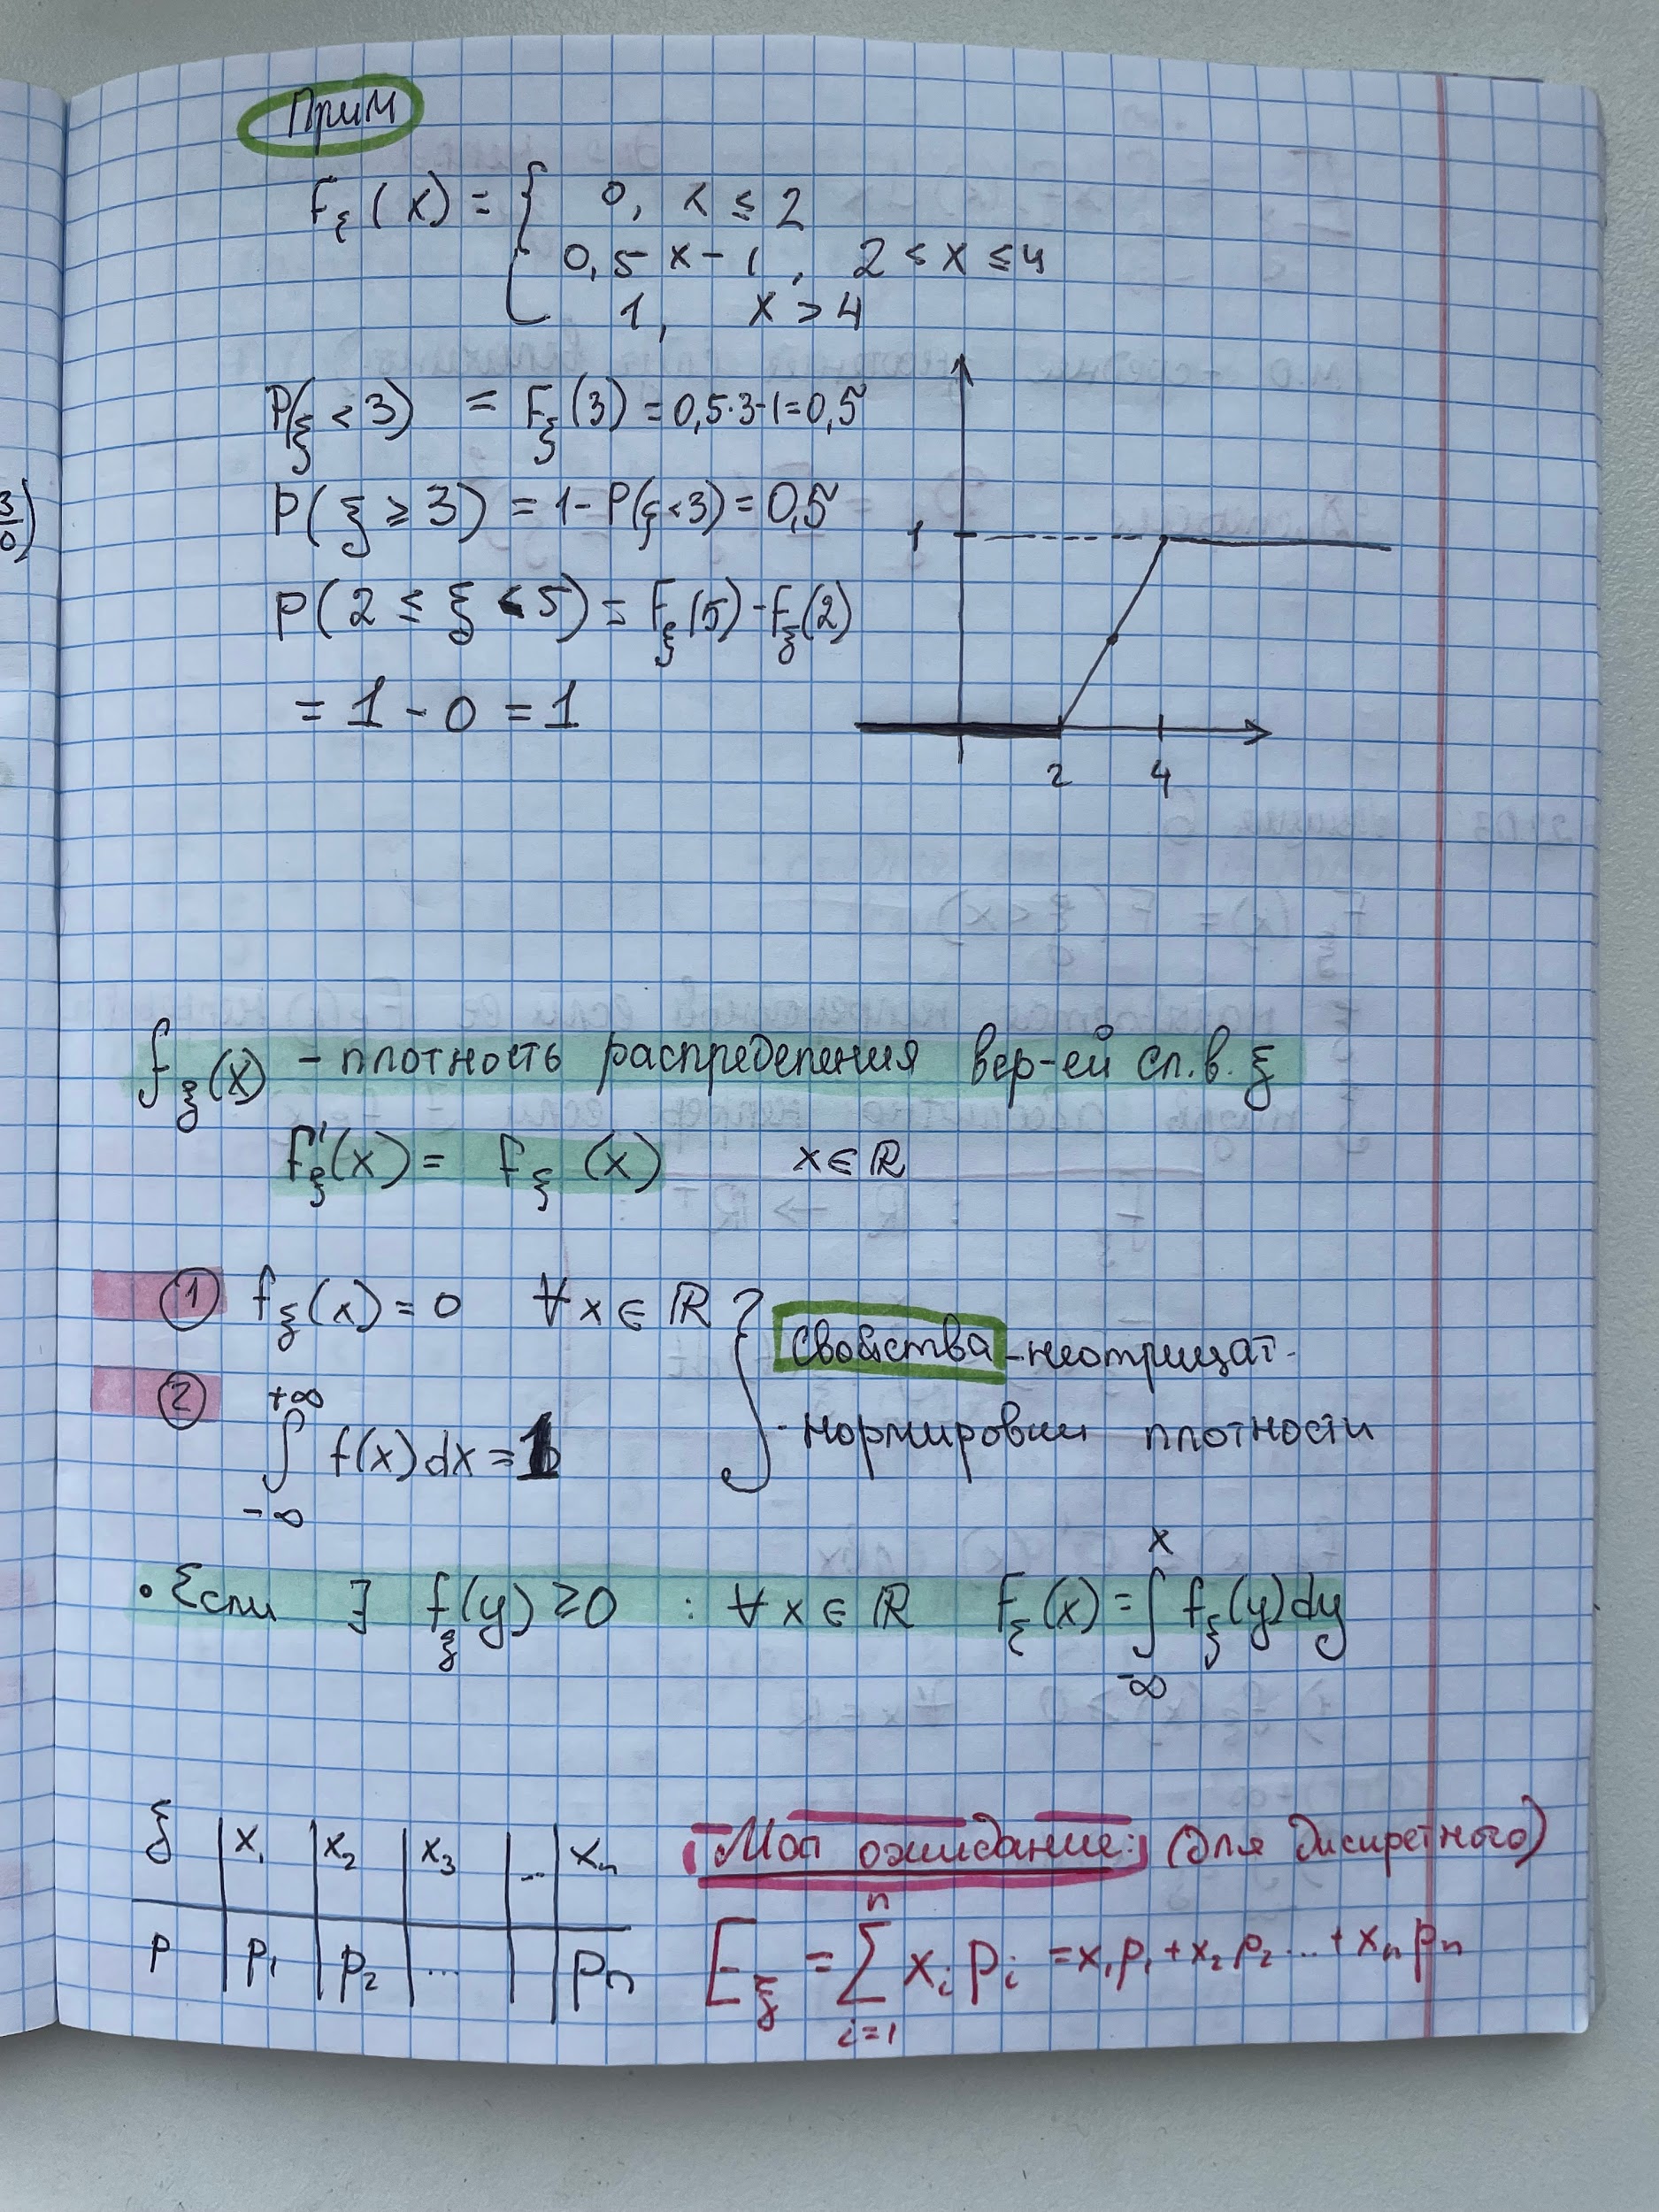 Прим
F_ξ(x) = { 0, x ≤ 2
0,5x - 1, 2 ≤ x ≤ 4
1, x > 4
P(ξ < 3) = F_ξ(3) = 0,5·3-1=0,5
P(ξ ≥ 3) = 1 - P(ξ<3) = 0,5
P(2 ≤ ξ < 5) = F_ξ(5) - F_ξ(2)
= 1 - 0 = 1
1
2 4
f_ξ(x) - плотность распределения вер-ей сл.в. ξ
F'_ξ(x) = f_ξ(x) x ∈ ℝ
① f_ξ(x) = 0 ∀x ∈ ℝ } свойства - неотрицат.
② ∫_{-∞}^{+∞} f(x)dx = 1 - нормировки плотности
• Если ∃ f_ξ(y) ≥ 0 : ∀x ∈ ℝ F_ξ(x) = ∫_{-∞}^{x} f_ξ(y)dy
ξ | x₁ | x₂ | x₃ | ... | xₙ
p | p₁ | p₂ | ... | | pₙ
Мат ожидание: (для дискретного)
E_ξ = ∑_{i=1}^{n} x_i p_i = x₁p₁ + x₂p₂ ... + xₙpₙ